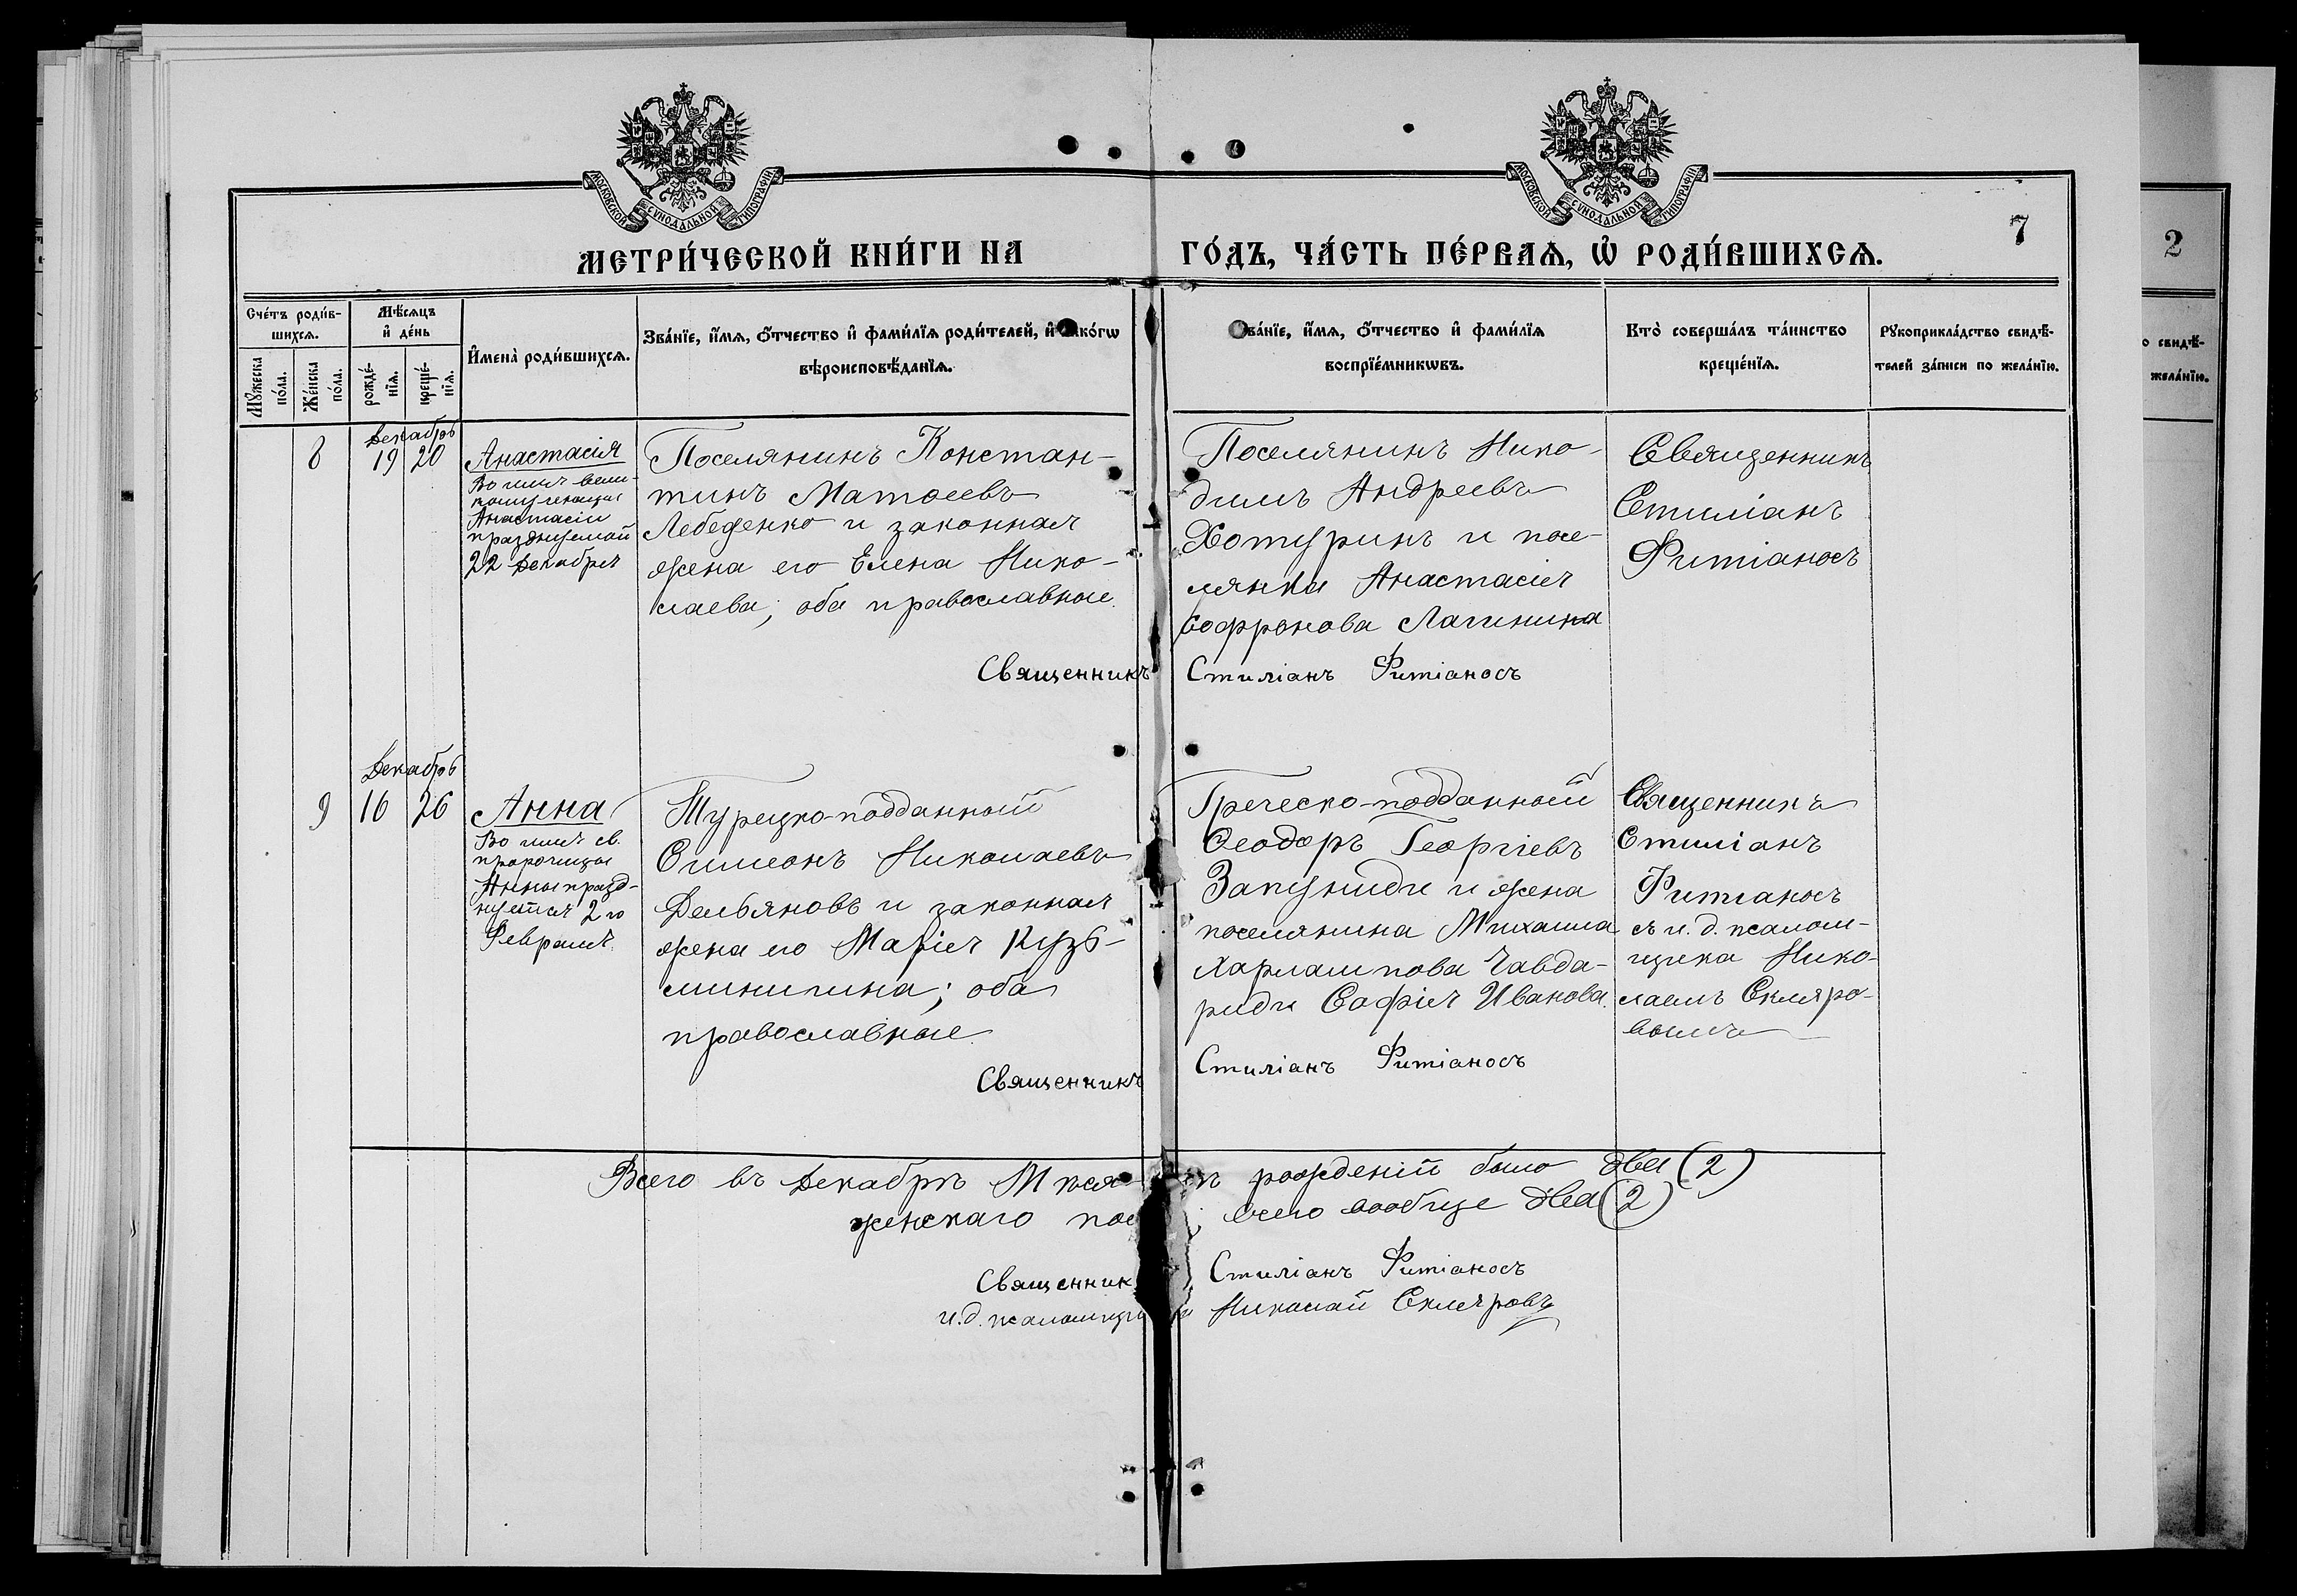 МОСКОВСКОЙ СѴНОДАЛЬНОЙ ТИПОГРАФІИ
МОСКОВСКОЙ СѴНОДАЛЬНОЙ ТИПОГРАФІИ
МЕТРИ́ЧЕСКОЙ КНИ́ГИ НА ГО́ДЪ, ЧА́СТЬ ПЕ́РВАѦ, Ѡ҆ РОДИ́ВШИХСѦ.
7
2
Сче́тъ роди́в-
шихсѧ.
Мꙋ́жеска
по́ла.
Же́нска
по́ла.
Мѣ́сѧцъ
и҆ де́нь
рожде́-
нїѧ.
креще́-
нїѧ.
И҆мена̀ роди́вшихсѧ.
Зва́нїе, и҆́мѧ, ѻ҆́тчество и҆ фами́лїѧ роди́телей, и҆ како́гѡ
вѣроисповѣ́данїѧ.
Зва́нїе, и҆́мѧ, ѻ҆́тчество и҆ фами́лїѧ
воспрїе́мникѡвъ.
Кто̀ соверша́лъ та́инство
креще́нїѧ.
Рꙋкоприкла́дство свидѣ́-
телей за́писи по жела́нїю.
о свидѣ́-
жела́нїю.
8
Декабрь
19 20
Анастасія
Во имя вели-
комученицы
Анастасіи
празднуемой
22 Декабря
Поселянинъ Констан-
тинъ Матѳеевъ
Лебеденко и законная
жена его Елена Нико-
лаева; оба православные.
Поселянинъ Нико-
димъ Андреевъ
Хотуринъ и посе-
лянка Анастасія
Софронова Лагинина
Священникъ
Стиліанъ
Фитіаносъ
Священникъ Стиліанъ Фитіаносъ
9
Декабрь
16 26
Анна
Во имя св.
пророчицы
Анны празд-
нуется 2го
Февраля.
Турецко-подданный
Симеонъ Николаевъ
Дельяновъ и законная
жена его Марія Кузь-
минична; оба
православные.
Греческо-подданный
Ѳеодоръ Георгіевъ
Запуниди и жена
поселянина Михаила
Харлампова Чавда-
риди Софія Иванова.
Священникъ
Стиліанъ
Фитіаносъ
съ и. д. псалом-
щика Нико-
лаемъ Скляро-
вымъ
Священникъ Стиліанъ Фитіаносъ
Всего въ Декабрѣ Мѣся- рожденій было два (2)
женскаго пол ; всего вообще два (2)
Священник Стиліанъ Фитіаносъ
и.д. псаломщи Николай Скляровъ